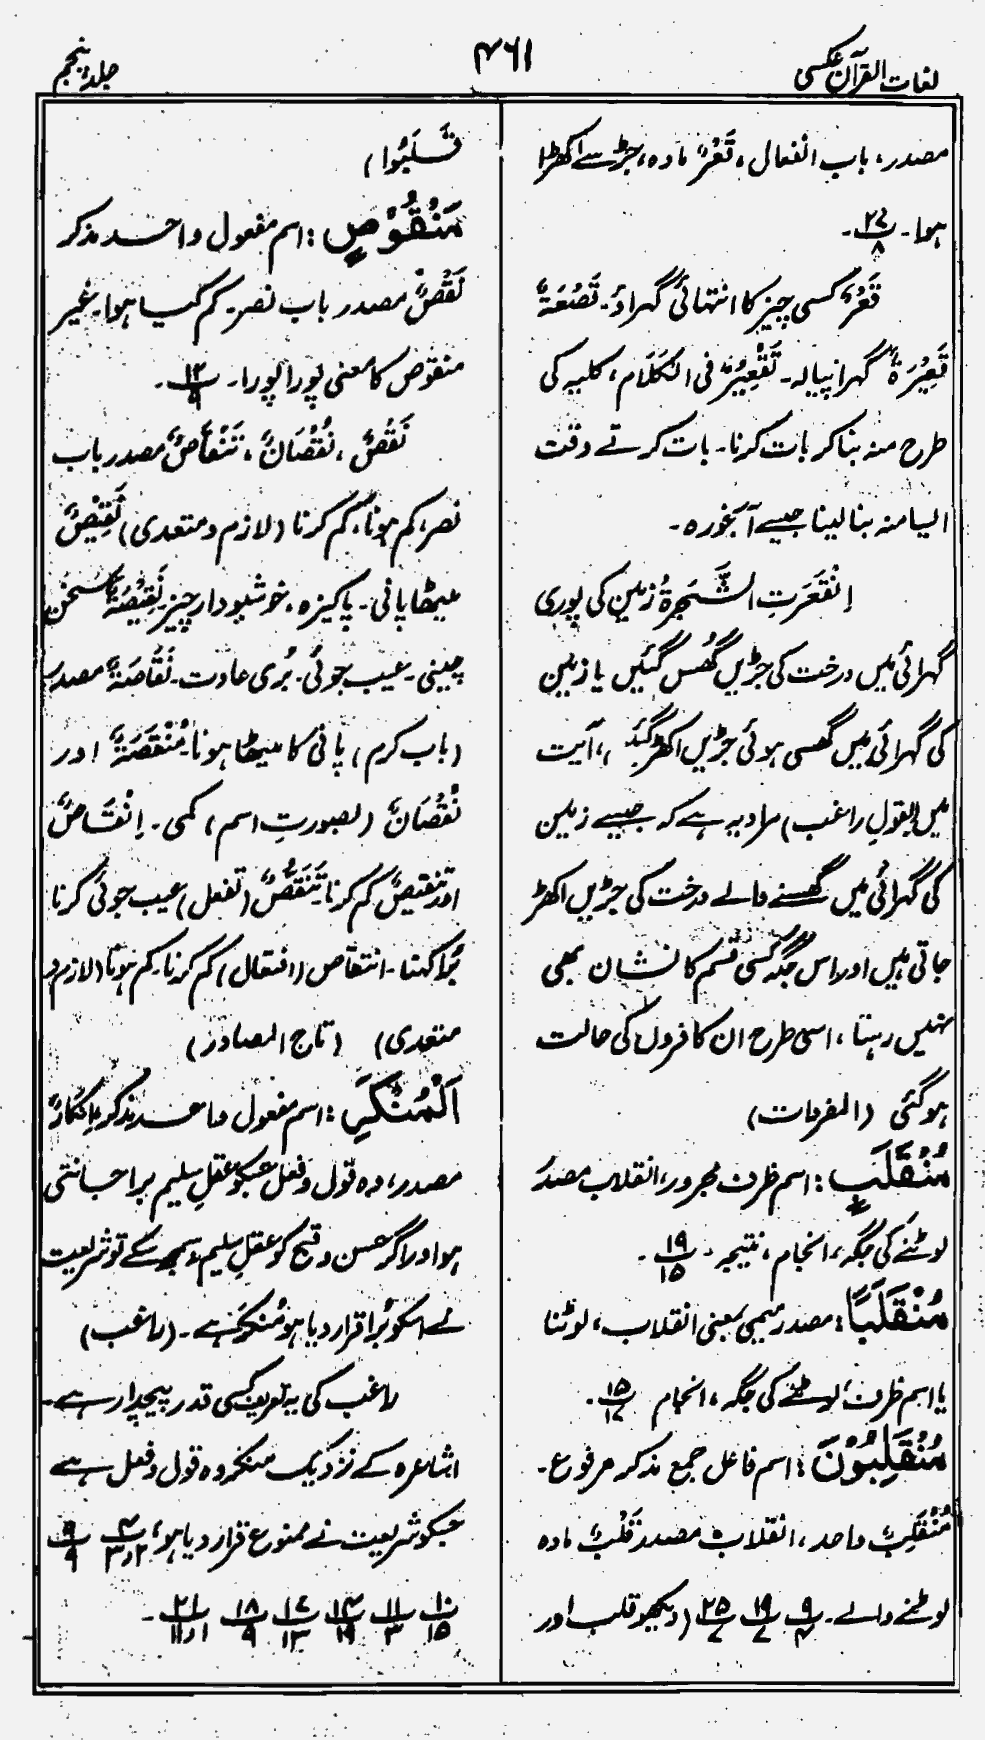 لغات القرآن عکسی
۴۶۱
جلد پنجم
مصدر، باب انفعال، قَعْرٌ مادہ، جڑ سے اکھڑا
ہوا۔ ۲۷/۸۔
قَعْرٌ کسی چیز کا انتہائی گہراؤ۔ قَصْعَةٌ
قَعِيْرَةٌ گہرا پیالہ۔ تَقْعِيْرٌ فی الکَلَام، کلیہ کی
طرح منہ بنا کر بات کرنا۔ بات کرتے وقت
ایسا منہ بنا لینا جیسے آبخورہ۔
اِنْقَعَرَتِ الشَّجَرَةُ زمین کی پوری
گہرائی میں درخت کی جڑیں گُھس گئیں یا زمین
کی گہرائی میں گھسی ہوئی جڑیں اکھڑ گئیں، آیت
میں (بقولِ راغب) مراد یہ ہے کہ جیسے زمین
کی گہرائی میں گھسنے والے درخت کی جڑیں اکھڑ
جاتی ہیں اور اس جگہ کسی قسم کا نشان بھی
نہیں رہتا، اسی طرح ان کافروں کی حالت
ہو گئی (المفردات)
مُنْقَلَبٍ: اسم ظرف مجرور، انقلاب مصدر
لوٹنے کی جگہ، انجام، نتیجہ۔ ۱۹/۱۵۔
مُنْقَلَبًا: مصدر میمی بمعنی انقلاب، لوٹنا
یا اسم ظرف، لوٹنے کی جگہ، انجام ۱۵/۱۷۔
مُنْقَلِبُوْنَ: اسم فاعل جمع مذکر مرفوع۔
مُنْقَلِبٌ واحد، انقلاب مصدر قَلْبٌ مادہ
لوٹنے والے۔ ۹/۴ ۱۹/۷ ۲۵/۷ (دیکھو قلب اور
تَسَلَبُوا)
مَنْقُوْصٍ: اسم مفعول واحد مذکر
نَقْصٌ مصدر باب نصر۔ کم کیا ہوا۔ غیر
منقوص کا معنی پورا پورا۔ ۱۲/۹۔
نَقْصٌ، نُقْصَانٌ، تَنْقَاصٌ مصدر باب
نصر، کم ہونا، کم کرنا (لازم و متعدی) نَقِيْصٌ
میٹھا پانی۔ پاکیزہ، خوشبودار چیز۔ نَقِيْصَةٌ سخن
چینی۔ عیب جوئی۔ بُری عادت۔ نَقَاصَةٌ مصدر
(باب کرم) پانی کا میٹھا ہونا۔ مَنْقَصَةٌ اور
نُقْصَانٌ (بصورتِ اسم) کمی۔ اِنْقَاصٌ
اور تنقیصٌ کم کرنا تَنَقُّصٌ (تفعل) عیب جوئی کرنا
بُرا کہنا۔ انتقاص (افتعال) کم کرنا۔ کم ہونا (لازم و
متعدی) (تاج المصادر)
اَلْمُنْكَرِ: اسم مفعول واحد مذکر اِنْكَارٌ
مصدر، وہ قول و فعل جسکو عقلِ سلیم برا جانتی
ہو اور اگر حسن و قبح کو عقلِ سلیم نہ سمجھ سکے تو شریعت
نے اسکو بُرا قرار دیا ہو مُنکر ہے۔ (راغب)
راغب کی یہ تعریف کسی قدر پیچیدار ہے۔
اشاعرہ کے نزدیک منکر وہ قول و فعل ہے
جسکو شریعت نے ممنوع قرار دیا ہو، ۴/۲و۳ ۹/۹
۱۰/۱۵ ۱۱/۳ ۱۴/۱۹ ۱۷/۱۳ ۱۸/۹ ۲۱/۱و۱۱۔